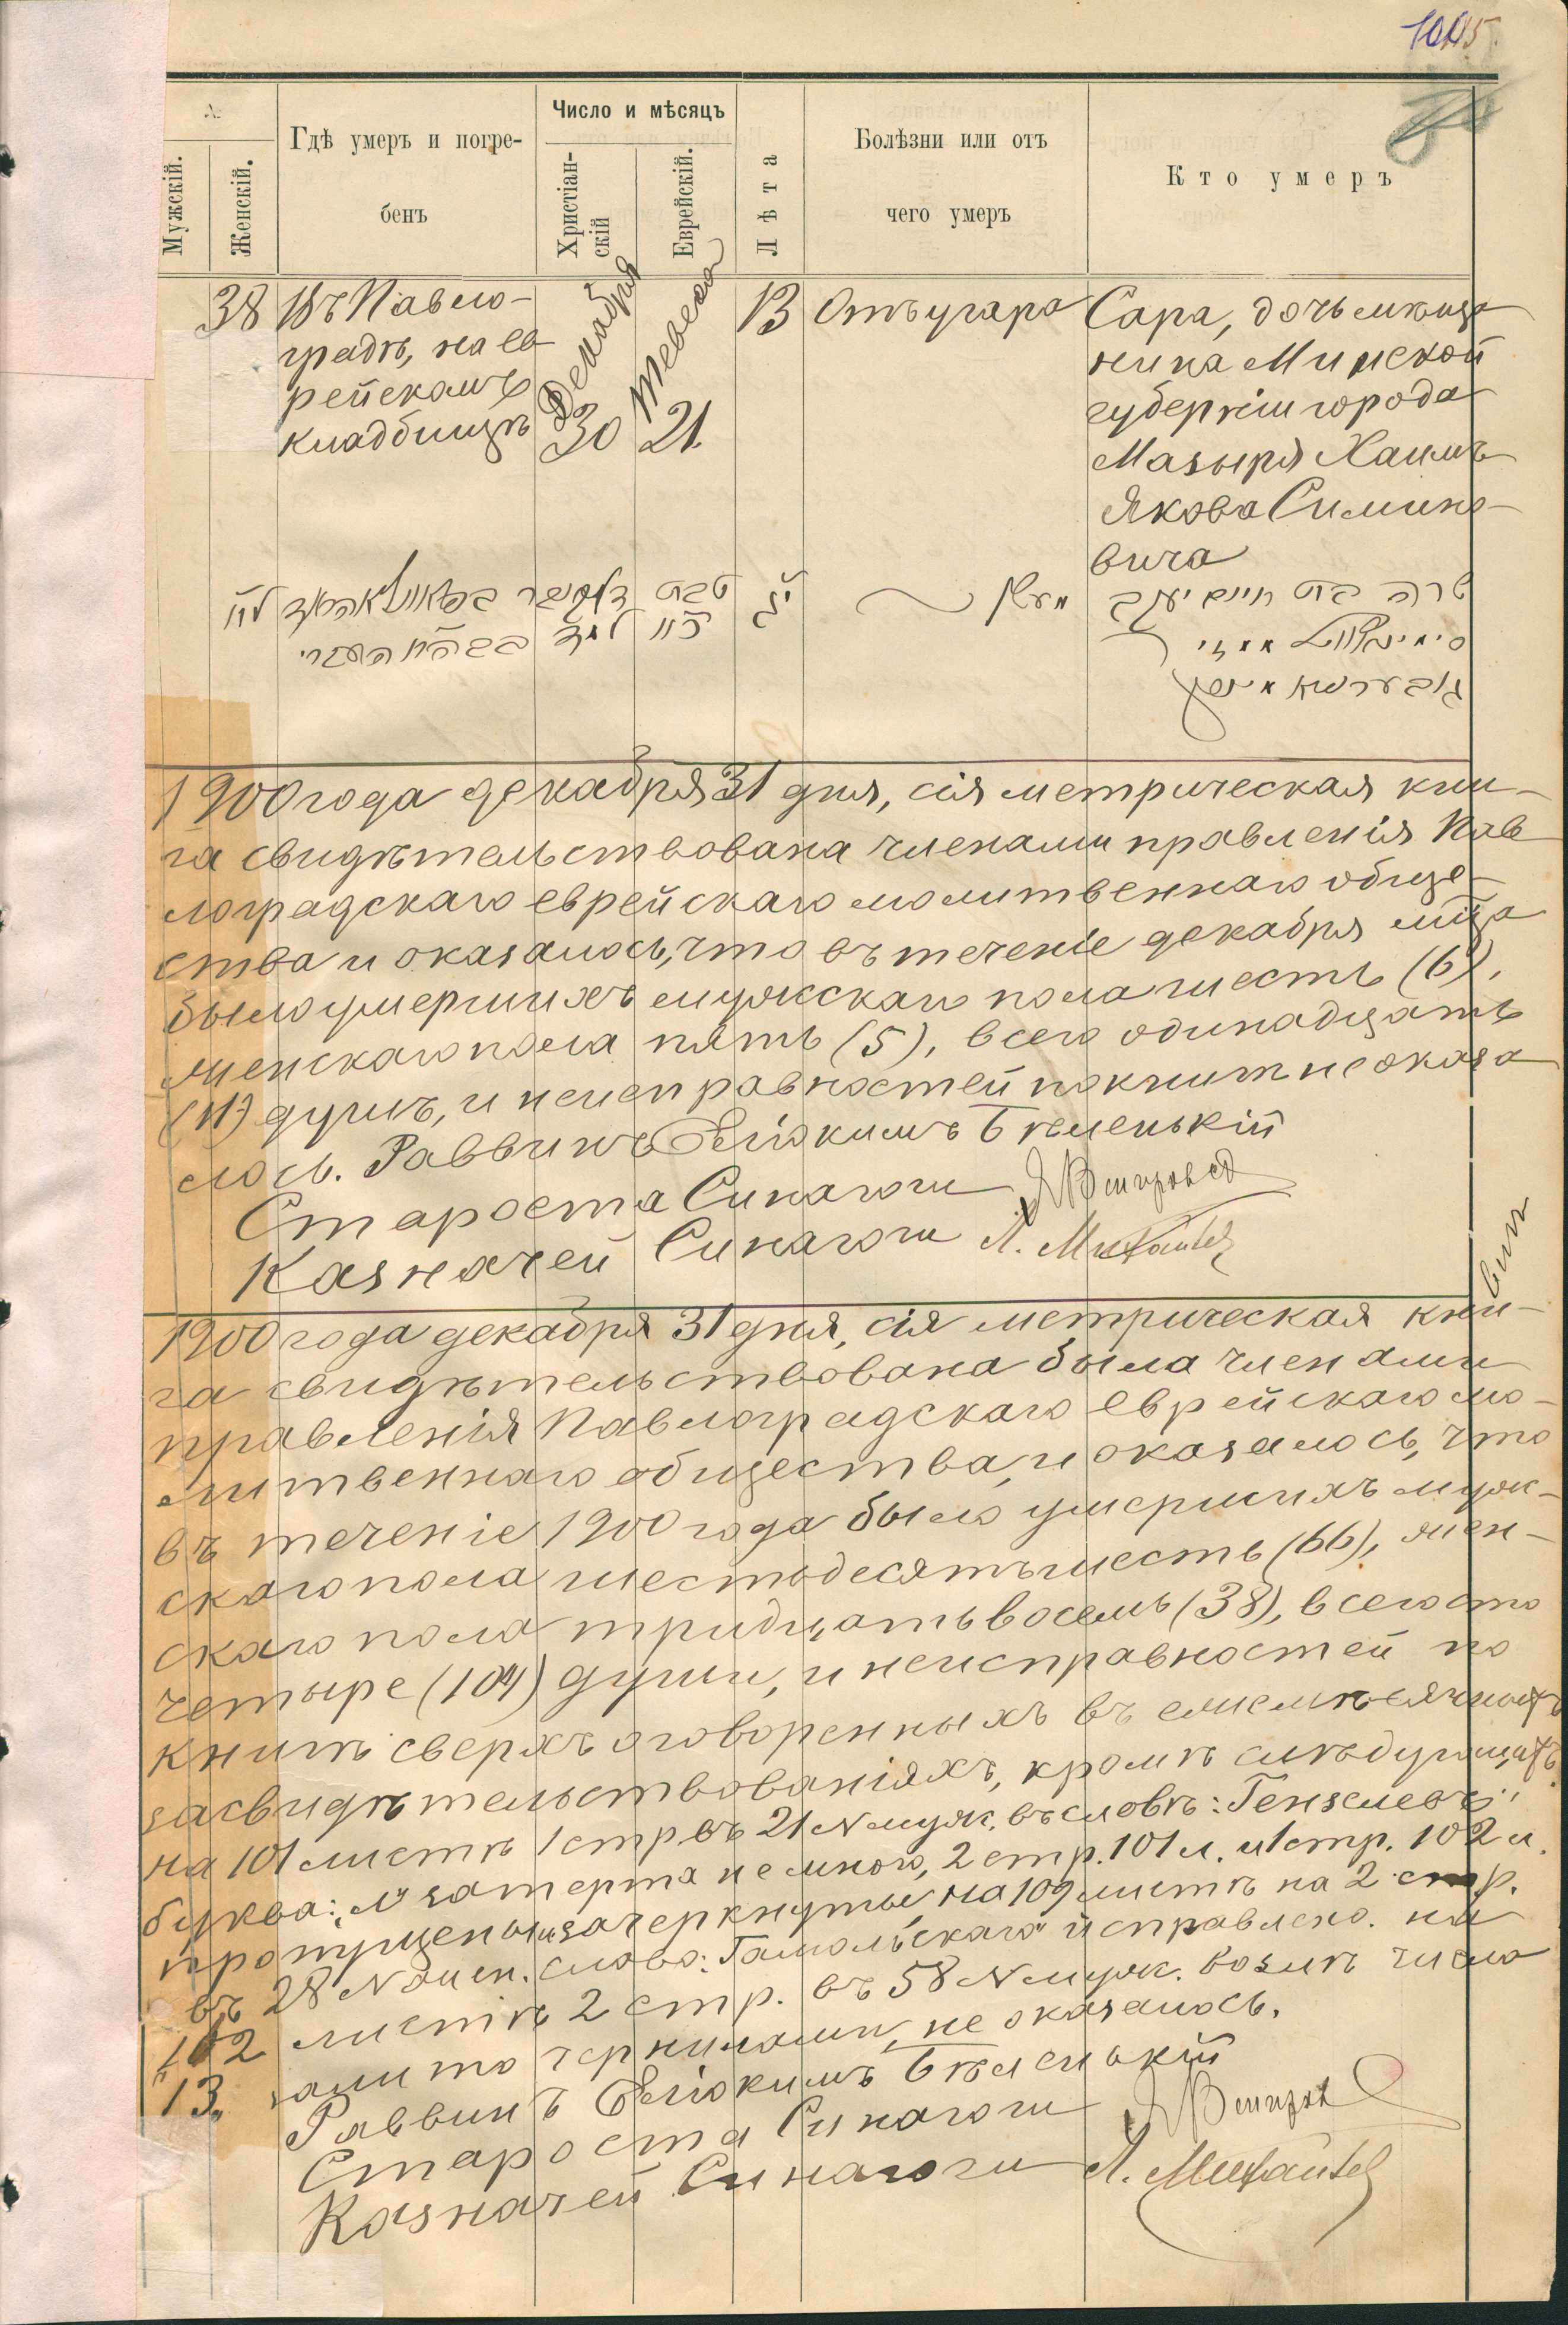 105
Мужскій.
Женскій.
Гдѣ умеръ и погре-
бенъ
Число и мѣсяцъ
Христіан-
скій
Еврейскій.
Лѣта
Болѣзни или отъ
чего умеръ
Кто умеръ
38 Въ Павло- Декабря Тевеса 13 Отъ угара Сара, дочь мѣща
градѣ, на ев нина Минской
рейскомъ губерніи города
кладбищѣ 30 21 Мазыря Хаимъ
Якова Симино-
вича
שרה בת חיים יעקב
1900 года декабря 31 дня, сія метрическая кни-
га свидѣтельствована членами правленія Пав
лоградскаго еврейскаго молитвеннаго обще-
ства и оказалось, что въ теченіе декабря мца
было умершихъ мужскаго пола шесть (6),
женскаго пола пять (5), всего одинадцать
(11) душъ, и неисправностей по книгѣ не оказа
лось. Раввинъ Еліокимъ Бѣленькій
Староста Синагоги
Казначей Синагоги Л.
вин
1900 года декабря 31 дня, сія метрическая кни-
га свидѣтельствована была членами
правленія Павлоградскаго еврейскаго мо-
литвеннаго общества, и оказалось, что
въ теченіе 1900 года было умершихъ муж-
скаго пола шестьдесятъ шесть (66), жен-
скаго пола тридцать восемь (38), всего сто
четыре (104) души, и неисправностей по
книгѣ сверхъ оговоренныхъ въ ежемѣсячныхъ
засвидѣтельствованіяхъ, кромѣ слѣдующихъ:
на 101 листѣ 1 стр въ 21 N муж. въ словѣ: Гензелевъ,
буква: „л" затерта не много, 2 стр. 101 л. и 1 стр. 102 л.
пропущены и зачеркнуты, на 109 листѣ на 2 стр.
въ 28 N жен. слово: Гамольскаго исправлено. на
102 листѣ 2 стр. въ 58 N муж. возлѣ числа
13, залито чернилами, не оказалось.
Раввинъ Еліокимъ Бѣленькій
Староста Синагоги
Казначей Синагоги Л.